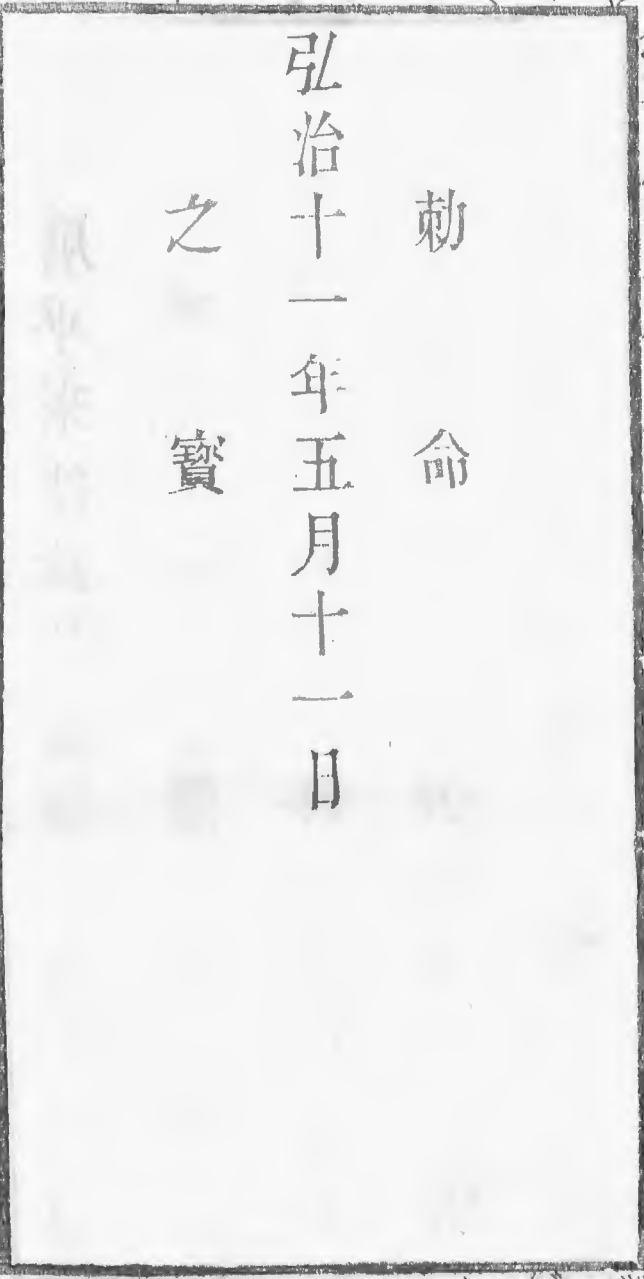 勅命
弘治十一年五月十一日
之寶